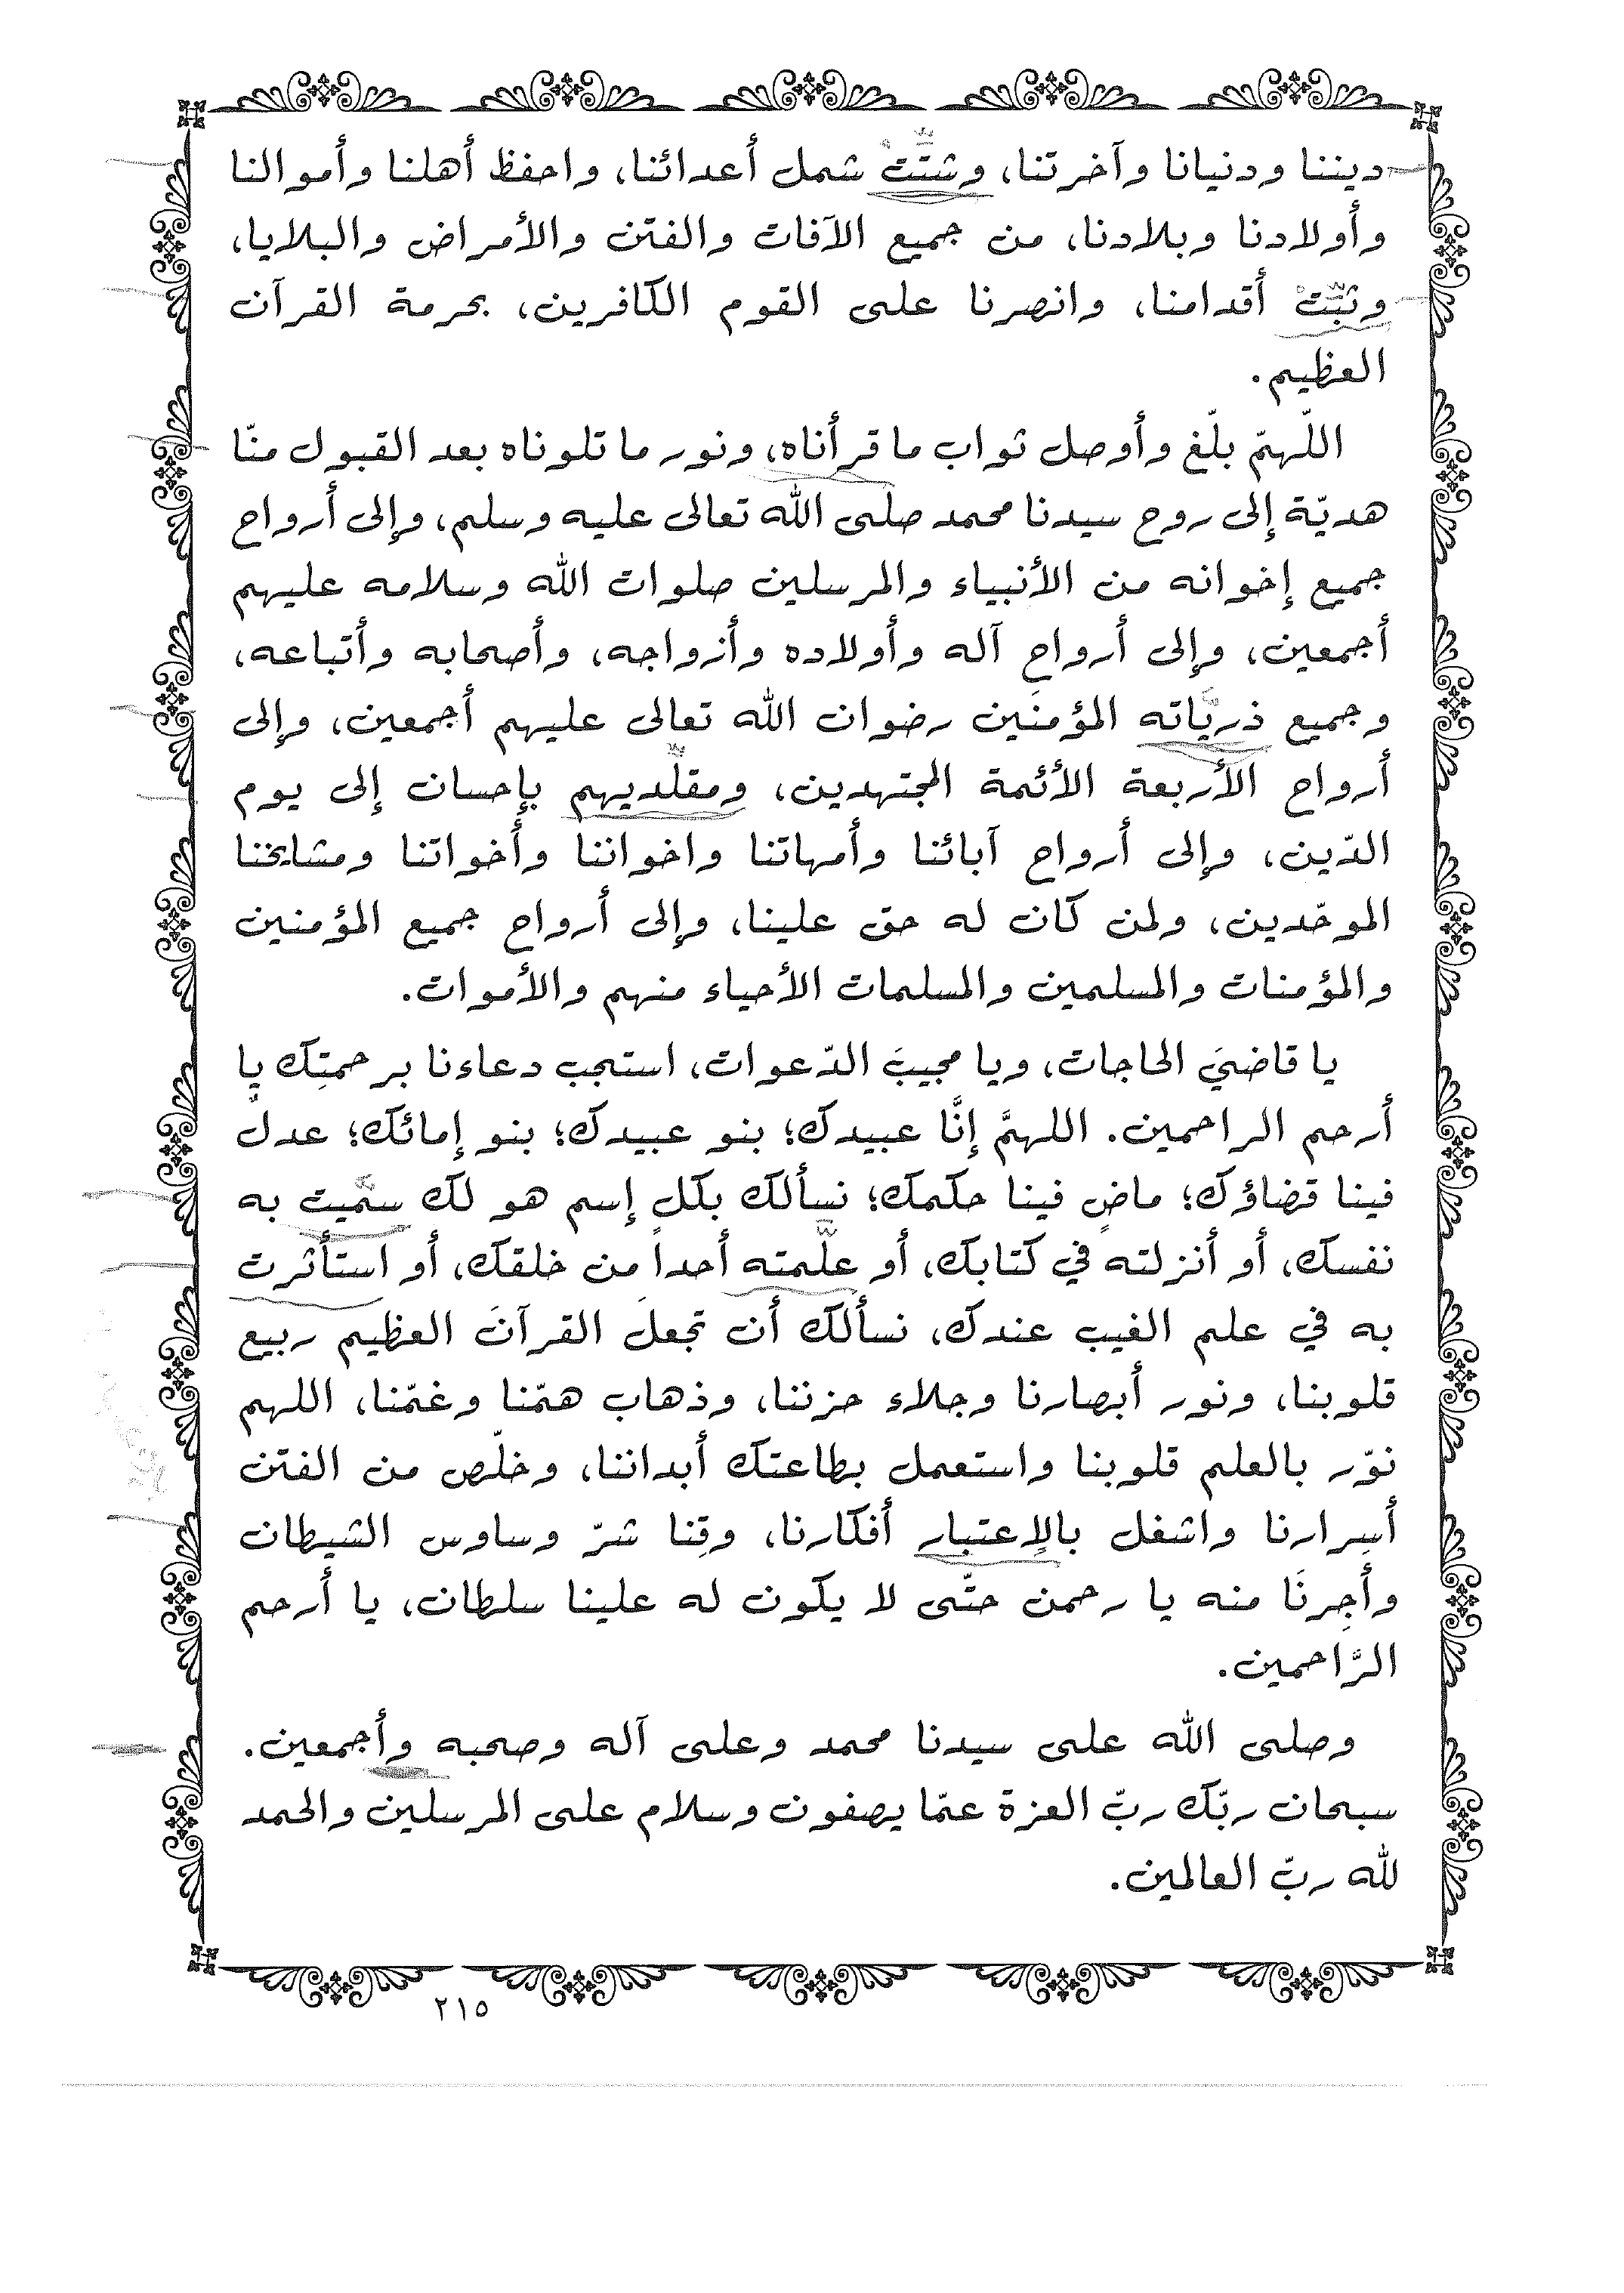 ديننا ودنيانا وآخرتنا، وشتّتْ شمل أعدائنا، واحفظ أهلنا وأموالنا
وأولادنا وبلادنا، من جميع الآفات والفتن والأمراض والبلايا،
وثبّتْ أقدامنا، وانصرنا على القوم الكافرين، بحرمة القرآن
العظيم.
اللّهمّ بلّغ وأوصل ثواب ما قرأناه، ونور ما تلوناه بعد القبول منّا
هديّة إلى روح سيدنا محمد صلى الله تعالى عليه وسلم، وإلى أرواح
جميع إخوانه من الأنبياء والمرسلين صلوات الله وسلامه عليهم
أجمعين، وإلى أرواح آله وأولاده وأزواجه، وأصحابه وأتباعه،
وجميع ذريّاته المؤمنَين رضوان الله تعالى عليهم أجمعين، وإلى
أرواح الأربعة الأئمة المجتهدين، ومقلّديهم بإحسان إلى يوم
الدّين، وإلى أرواح آبائنا وأمهاتنا واخواننا وأخواتنا ومشايخنا
الموحّدين، ولمن كان له حق علينا، وإلى أرواح جميع المؤمنين
والمؤمنات والمسلمين والمسلمات الأحياء منهم والأموات.
يا قاضيَ الحاجات، ويا مجيبَ الدّعوات، استجب دعاءنا برحمتِك يا
أرحم الراحمين. اللهمَّ إنَّا عبيدك؛ بنو عبيدك؛ بنو إمائك؛ عدلٌ
فينا قضاؤك؛ ماضٍ فينا حكمك؛ نسألك بكلِ إسم هو لك سمّيت به
نفسك، أو أنزلته في كتابك، أو علّمته أحداً من خلقك، أو استأثرت
به في علم الغيب عندك، نسألك أن تجعلَ القرآنَ العظيم ربيع
قلوبنا، ونور أبصارنا وجلاء حزننا، وذهاب همّنا وغمّنا، اللهم
نوّر بالعلم قلوبنا واستعمل بطاعتك أبداننا، وخلّص من الفتن
أسِرارنا واشغل بالإعتبار أفكارنا، وقِنا شرّ وساوس الشيطان
وأجِرنَا منه يا رحمن حتّى لا يكون له علينا سلطان، يا أرحم
الرَّاحمين.
وصلى الله على سيدنا محمد وعلى آله وصحبه وأجمعين.
سبحان ربّك ربّ العزة عمّا يصفون وسلام على المرسلين والحمد
لله ربّ العالمين.
٢١٥